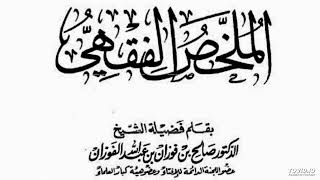 المُلَخَّصُ الفِقْهِيُّ
بقلم فضيلة الشيخ
الدكتور صالح بن فوزان بن عبد الله الفوزان
عضو اللجنة الدائمة للإفتاء وعضو هيئة كبار العلماء
TOVID.IO